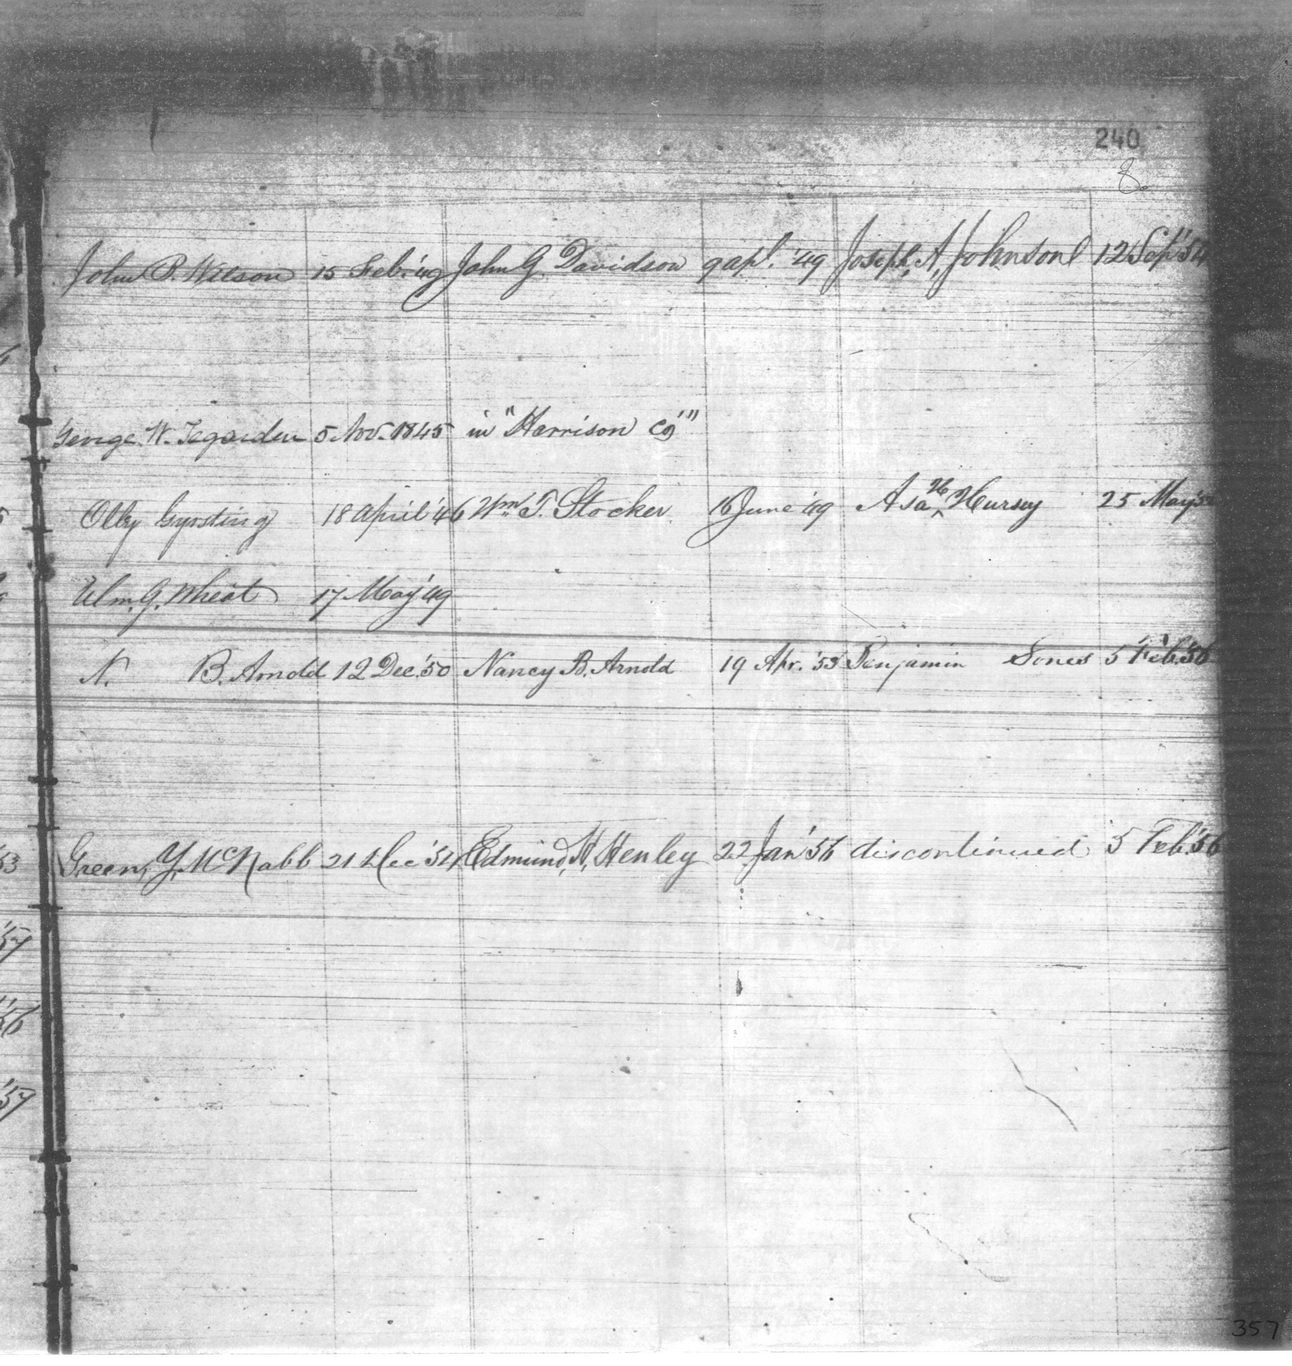 240
8.
John P. Wilson 15 Feb. '49 John G. Davidson 9 apl. '49 Joseph A. Johnson 12 Sep '54
George W. Tegarden 5 Nov. 1845 in "Harrison Co"
18 April '46 Wm. T. Stocker 16 June '49 Asa H. Hursey 25 May
Wm. G. Wheat 17 May '49
N. B. Arnold 12 Dec. '50 Nancy B. Arnold 19 Apr. '53 Benjamin Jones 5 Feb. '56
Green Y. McNabb 21 Dec '54 Edmund H. Henley 22 Jan '56 discontinued 5 Feb. '56
53
'57
'56
'57
357